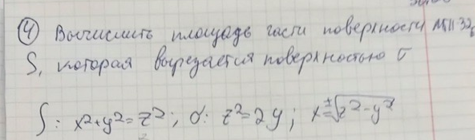 ④ Вычислить площадь части поверхности
S, которая вырезается поверхностью σ
S: x²+y²=z²; σ: z²=2y; x=±√z²-y²